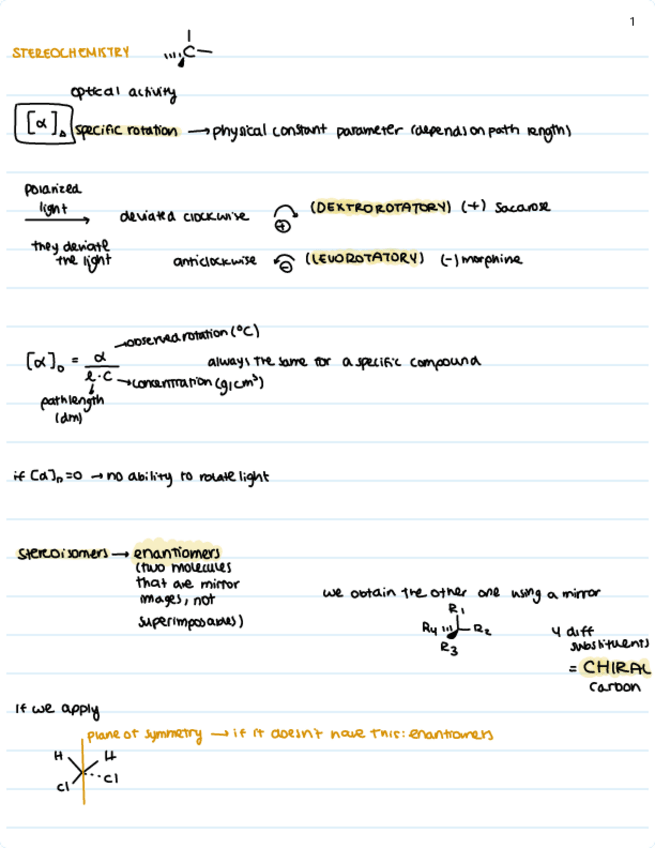 1
STEREOCHEMISTRY
C
optical activity
[α]D specific rotation → physical constant parameter (depends on path length)
polarized
light
deviated clockwise ⊕ (DEXTROROTATORY) (+) Sacarose
they deviate
the light
anticlockwise ⊖ (LEVOROTATORY) (-) morphine
→ observed rotation (°C)
[α]D = α / l·C
always the same for a specific compound
→ concentration (g/cm³)
path length
(dm)
if [α]D = 0 → no ability to rotate light
stereoisomers → enantiomers
(two molecules
that are mirror
images, not
superimposables)
we obtain the other one using a mirror
R1
R4 R2
R3
4 diff
substituents
= CHIRAL
carbon
If we apply
plane of symmetry → if it doesn't have this: enantiomers
H H
Cl Cl